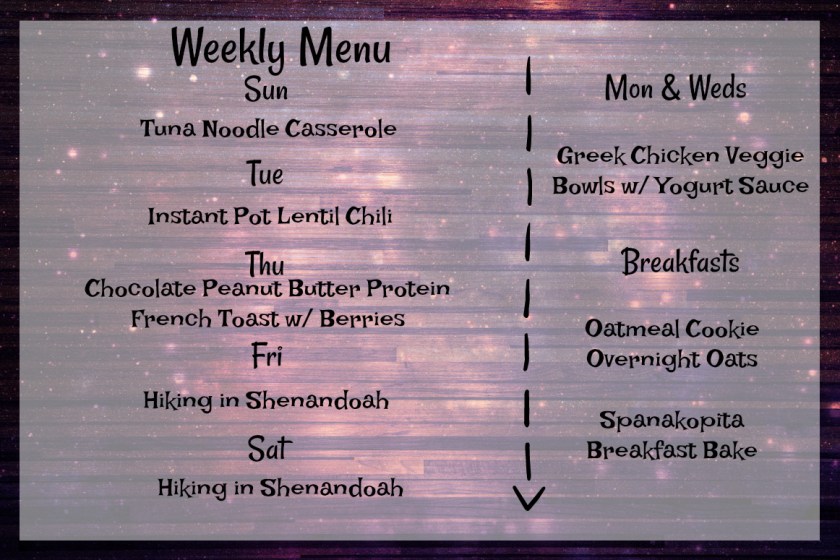 Weekly Menu
Sun
Tuna Noodle Casserole
Tue
Instant Pot Lentil Chili
Thu
Chocolate Peanut Butter Protein
French Toast w/ Berries
Fri
Hiking in Shenandoah
Sat
Hiking in Shenandoah
Mon & Weds
Greek Chicken Veggie
Bowls w/ Yogurt Sauce
Breakfasts
Oatmeal Cookie
Overnight Oats
Spanakopita
Breakfast Bake